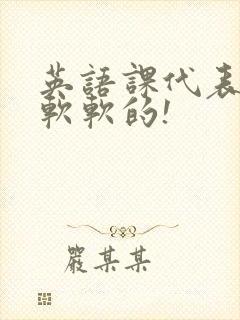 英語課代表
軟軟的!
嚴某某